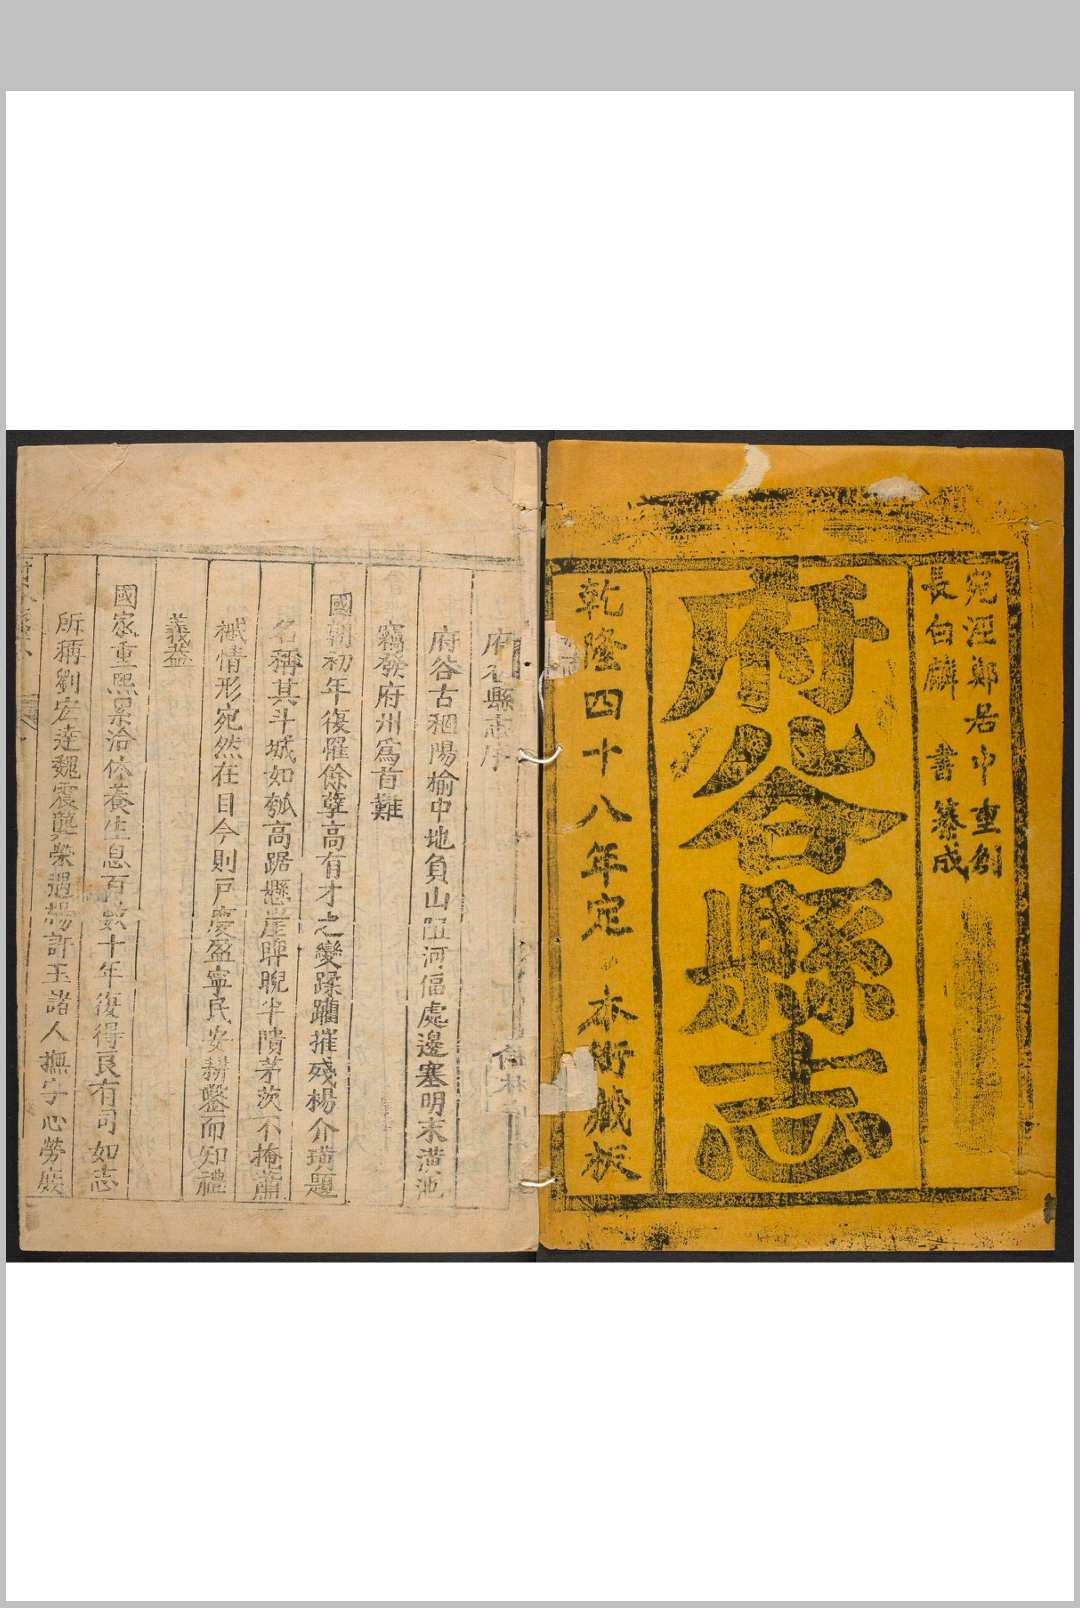 宛涇鄭居中重創
長白麟 書纂成
府谷縣志
乾隆四十八年定 本衙藏板
府谷縣志序
府谷古稒陽榆中地負山阻河偪處邊塞明末潢池
竊發府州爲首難
國朝初年復罹餘孽高有才之變蹂躪摧殘楊介璜題
名稱其斗城如瓠高踞懸崖睥睨半隤茅茨不掩蕭
慽情形宛然在目今則戸慶盈寧民安耕鑿而知禮
義蓋
國家重熙累洽休養生息百數十年復得良有司如志
所稱劉宏逵魏震龔榮遇楊許玉諸人撫字心勞庻